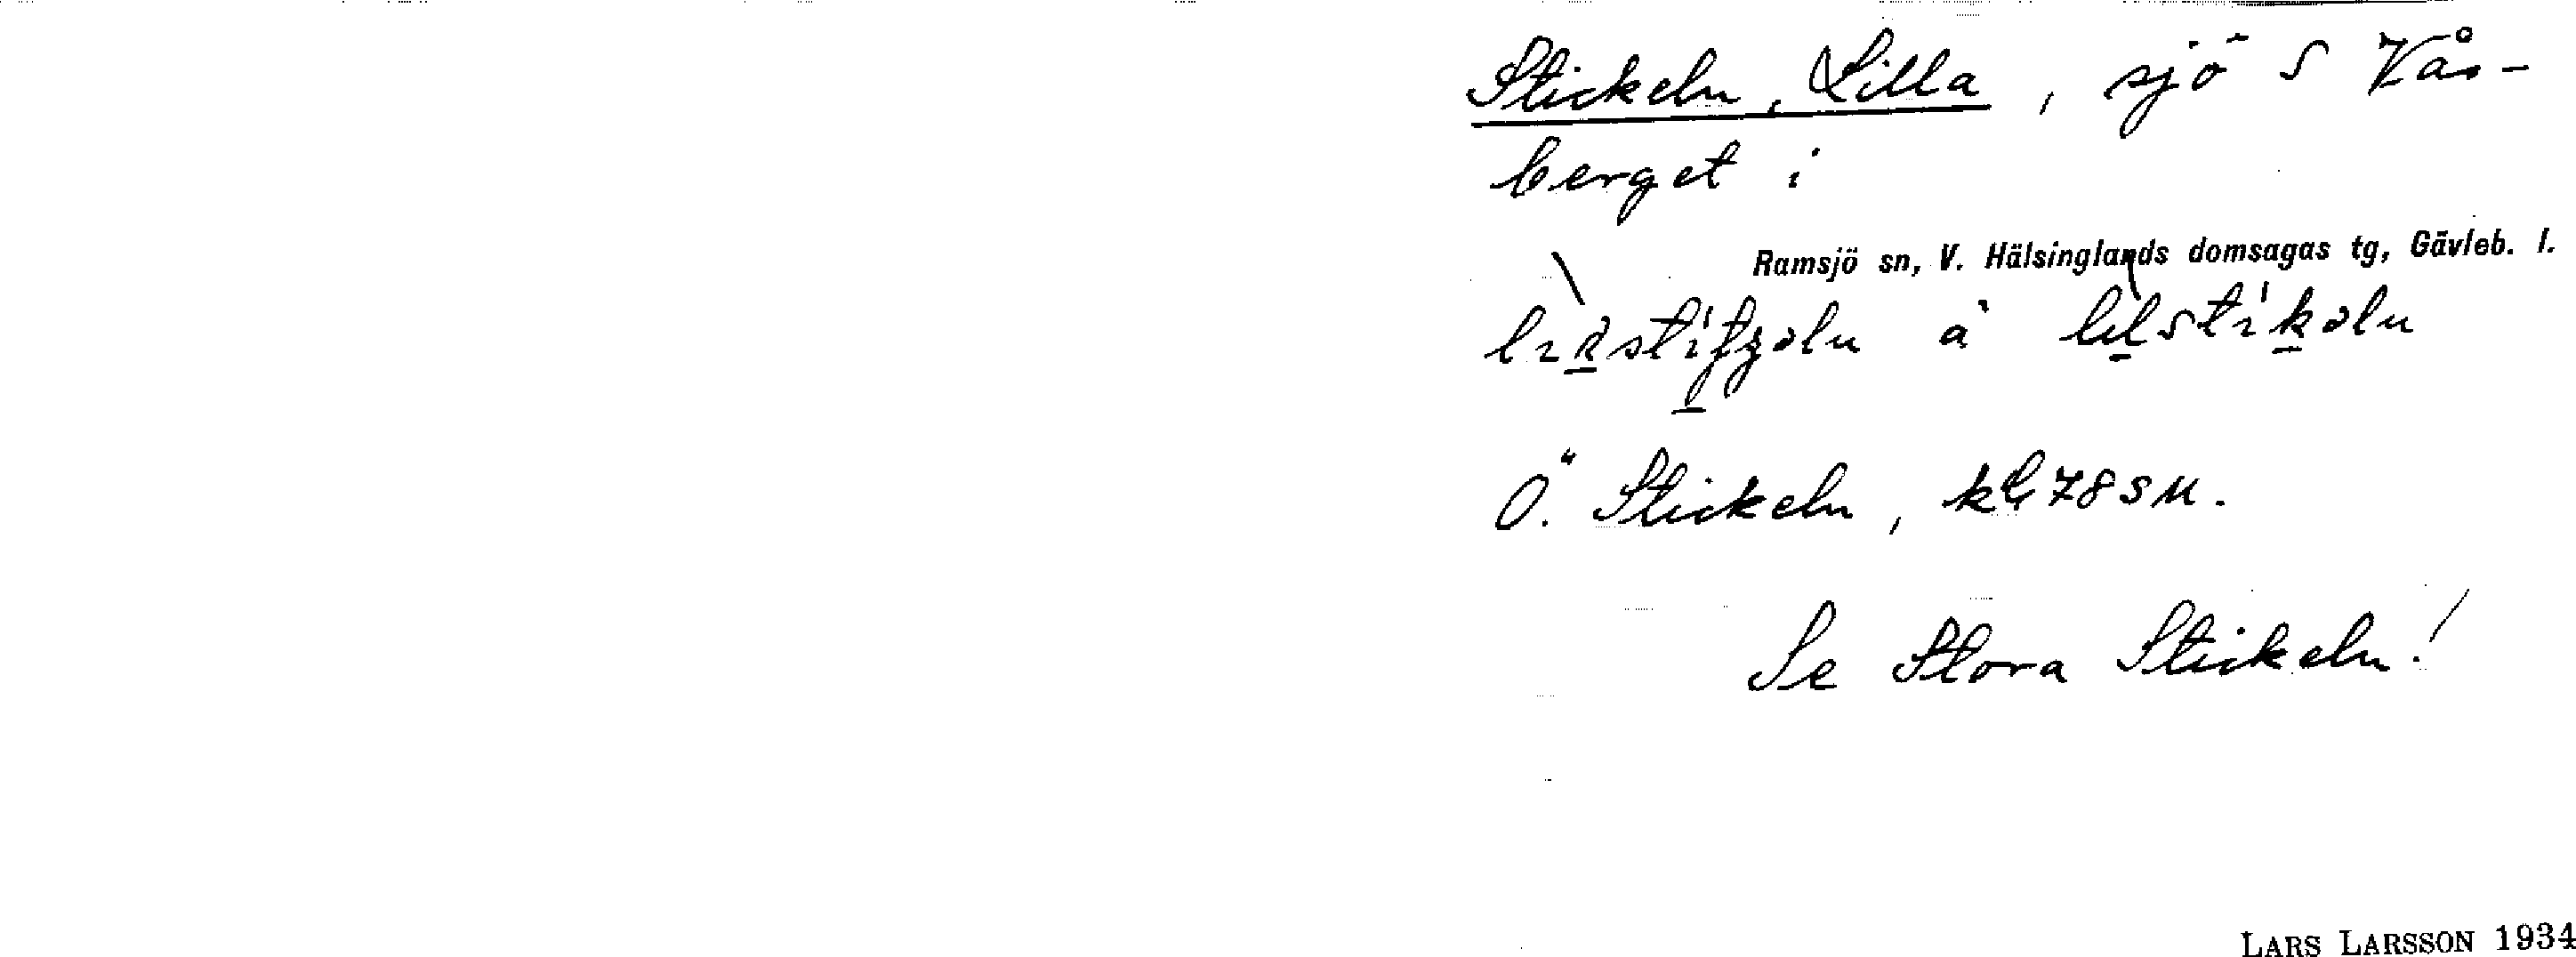 Stickeln, Lilla, sjö S Vås-
berget i
Ramsjö sn, V. Hälsinglands domsagas tg, Gävleb. l.
å
Ö. Stickeln, 78 SM.
Se Stora Stickeln!
LARS LARSSON 1934